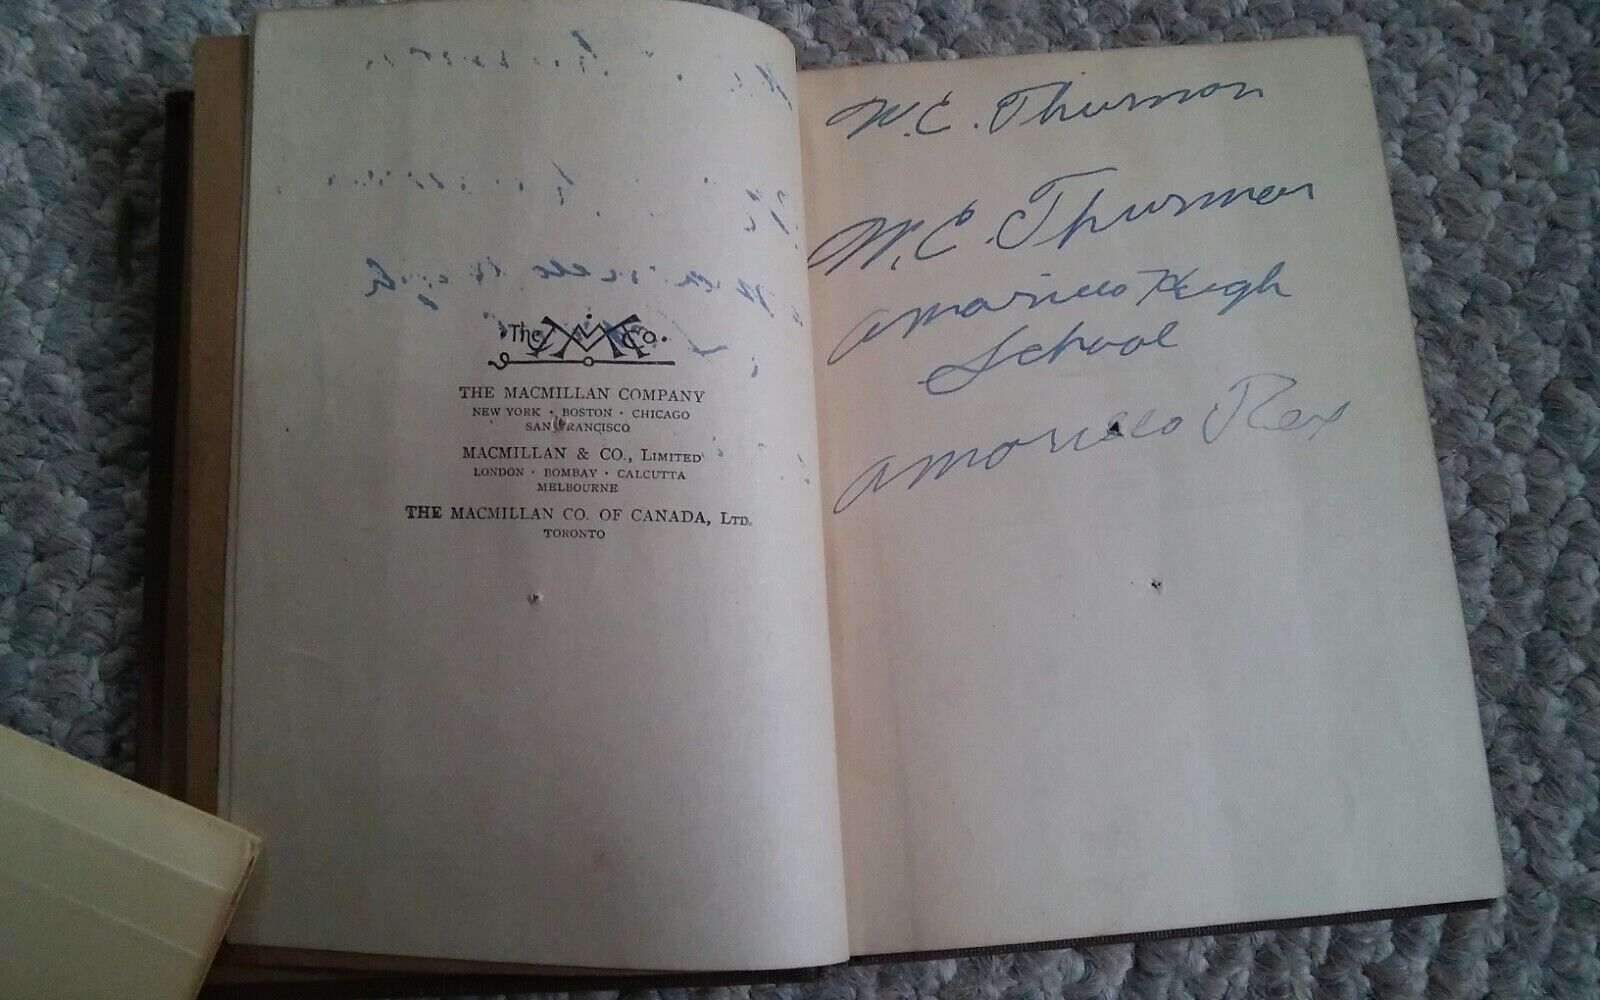 The MM Co.
THE MACMILLAN COMPANY
NEW YORK · BOSTON · CHICAGO
SAN FRANCISCO
MACMILLAN & CO., LIMITED
LONDON · BOMBAY · CALCUTTA
MELBOURNE
THE MACMILLAN CO. OF CANADA, LTD.
TORONTO
W.E. Thurman
W.E. Thurman
Amarillo High
School
Amarillo Tex